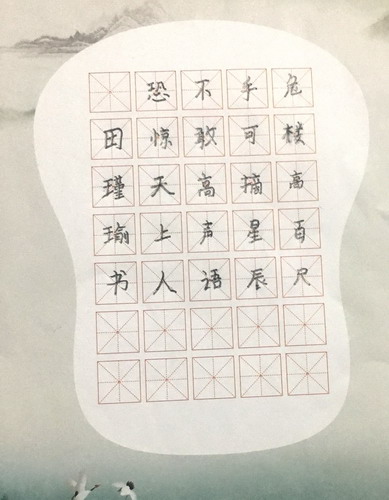 危楼高百尺
手可摘星辰
不敢高声语
恐惊天上人
田瑾瑜书